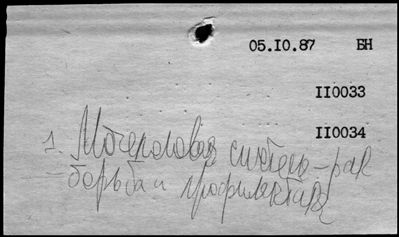 05.I0.87 БН
II0033
II0034
1. Мочеполовая система - рак
- борьба и профилактика